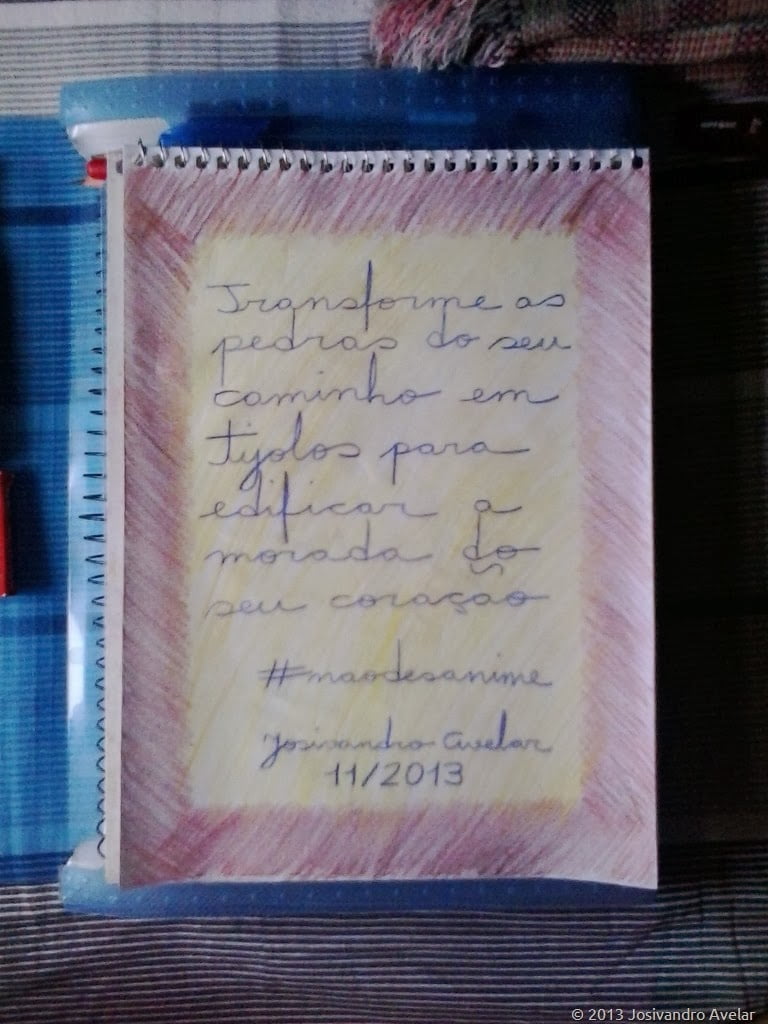 Transforme as
pedras do seu
caminho em
tijolos para
edificar a
morada do
seu coração
#naodesanime
Josivandro Avelar
11/2013
© 2013 Josivandro Avelar